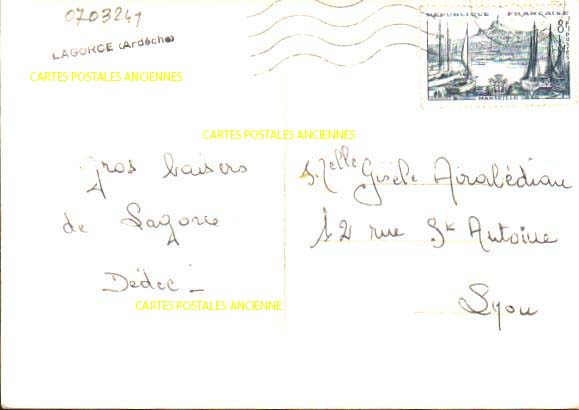 0703241
LAGORCE (Ardèche)
REPUBLIQUE FRANÇAISE
8F
POSTES
MARSEILLE
CARTES POSTALES ANCIENNES
CARTES POSTALES ANCIENNES
Gros baisers
de Lagorce
Dédée
CARTES POSTALES ANCIENNE
Melle Gisèle Airabédian
12 rue St Antoine
Lyon